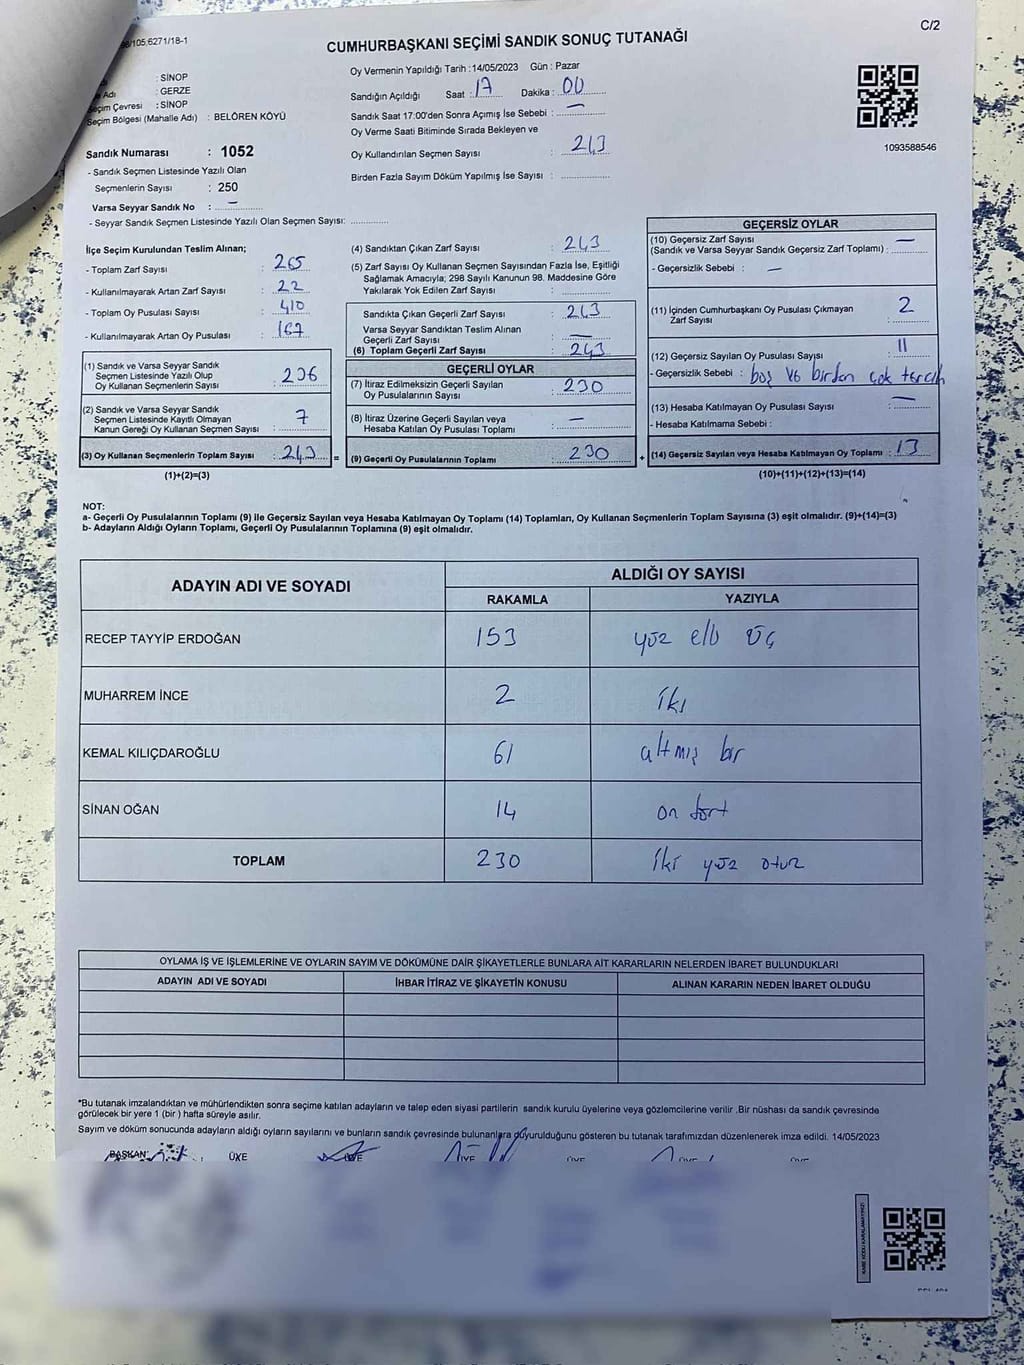 C/2
/105;6271/18-1
CUMHURBAŞKANI SEÇİMİ SANDIK SONUÇ TUTANAĞI
: SİNOP
Adı : GERZE
Seçim Çevresi : SİNOP
Seçim Bölgesi (Mahalle Adı) : BELÖREN KÖYÜ
Oy Vermenin Yapıldığı Tarih :14/05/2023 Gün : Pazar
Sandığın Açıldığı Saat : 17 Dakika : 00
Sandık Saat 17:00'den Sonra Açımış İse Sebebi : —
Oy Verme Saati Bitiminde Sırada Bekleyen ve
Oy Kullandırılan Seçmen Sayısı : 243
Birden Fazla Sayım Döküm Yapılmış İse Sayısı :
1093588546
Sandık Numarası : 1052
- Sandık Seçmen Listesinde Yazılı Olan
Seçmenlerin Sayısı : 250
Varsa Seyyar Sandık No : —
- Seyyar Sandık Seçmen Listesinde Yazılı Olan Seçmen Sayısı:
İlçe Seçim Kurulundan Teslim Alınan;
- Toplam Zarf Sayısı : 265
- Kullanılmayarak Artan Zarf Sayısı : 22
- Toplam Oy Pusulası Sayısı : 410
- Kullanılmayarak Artan Oy Pusulası : 167
(1) Sandık ve Varsa Seyyar Sandık
Seçmen Listesinde Yazılı Olup
Oy Kullanan Seçmenlerin Sayısı : 236
(2) Sandık ve Varsa Seyyar Sandık
Seçmen Listesinde Kayıtlı Olmayan
Kanun Gereği Oy Kullanan Seçmen Sayısı : 7
(3) Oy Kullanan Seçmenlerin Toplam Sayısı : 243 =
(1)+(2)=(3)
(4) Sandıktan Çıkan Zarf Sayısı : 243
(5) Zarf Sayısı Oy Kullanan Seçmen Sayısından Fazla İse, Eşitliği
Sağlamak Amacıyla; 298 Sayılı Kanunun 98. Maddesine Göre
Yakılarak Yok Edilen Zarf Sayısı :
Sandıkta Çıkan Geçerli Zarf Sayısı : 243
Varsa Seyyar Sandıktan Teslim Alınan
Geçerli Zarf Sayısı : —
(6) Toplam Geçerli Zarf Sayısı : 243
GEÇERLİ OYLAR
(7) İtiraz Edilmeksizin Geçerli Sayılan
Oy Pusulasının Sayısı : 230
(8) İtiraz Üzerine Geçerli Sayılan veya
Hesaba Katılan Oy Pusulası Toplamı : —
(9) Geçerli Oy Pusulalarının Toplamı : 230 +
GEÇERSİZ OYLAR
(10) Geçersiz Zarf Sayısı
(Sandık ve Varsa Seyyar Sandık Geçersiz Zarf Toplamı) : —
- Geçersizlik Sebebi : —
(11) İçinden Cumhurbaşkanı Oy Pusulası Çıkmayan
Zarf Sayısı : 2
(12) Geçersiz Sayılan Oy Pusulası Sayısı : 11
- Geçersizlik Sebebi : boş ve birden çok tercih
(13) Hesaba Katılmayan Oy Pusulası Sayısı : —
- Hesaba Katılmama Sebebi :
(14) Geçersiz Sayılan veya Hesaba Katılmayan Oy Toplamı : 13
(10)+(11)+(12)+(13)=(14)
NOT:
a- Geçerli Oy Pusulalarının Toplamı (9) ile Geçersiz Sayılan veya Hesaba Katılmayan Oy Toplamı (14) Toplamları, Oy Kullanan Seçmenlerin Toplam Sayısına (3) eşit olmalıdır. (9)+(14)=(3)
b- Adayların Aldığı Oyların Toplamı, Geçerli Oy Pusulalarının Toplamına (9) eşit olmalıdır.
ADAYIN ADI VE SOYADI ALDIĞI OY SAYISI
RAKAMLA YAZIYLA
RECEP TAYYİP ERDOĞAN 153 yüz elli üç
MUHARREM İNCE 2 iki
KEMAL KILIÇDAROĞLU 61 altmış bir
SİNAN OĞAN 14 on dört
TOPLAM 230 iki yüz otuz
OYLAMA İŞ VE İŞLEMLERİNE VE OYLARIN SAYIM VE DÖKÜMÜNE DAİR ŞİKAYETLERLE BUNLARA AİT KARARLARIN NELERDEN İBARET BULUNDUKLARI
ADAYIN ADI VE SOYADI İHBAR İTİRAZ VE ŞİKAYETİN KONUSU ALINAN KARARIN NEDEN İBARET OLDUĞU
*Bu tutanak imzalandıktan ve mühürlendikten sonra seçime katılan adayların ve talep eden siyasi partilerin sandık kurulu üyelerine veya gözlemcilerine verilir .Bir nüshası da sandık çevresinde
görülecek bir yere 1 (bir ) hafta süreyle asılır.
Sayım ve döküm sonucunda adayların aldığı oyların sayılarını ve bunların sandık çevresinde bulunanlara duyurulduğunu gösteren bu tutanak tarafımızdan düzenlenerek imza edildi. 14/05/2023
BAŞKAN ÜYE ÜYE ÜYE ÜYE ÜYE ÜYE